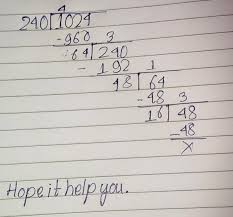 4
240 1024
-960 3
64 240
- 192 1
48 64
- 48 3
16 48
-48
x
Hope it help you.